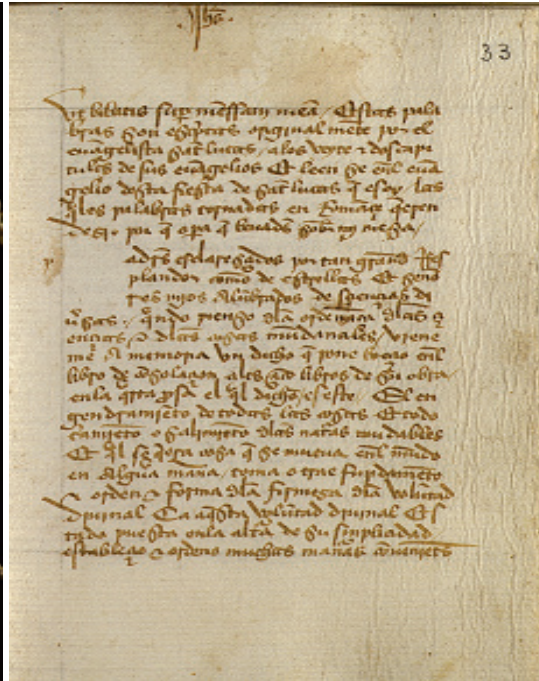 Jhs
33
bibatis super mensam mea / Estas pala
bras son escriptas original mete por el
euāgelista sāt lucas / a los veynte τ dos capi
tulos de sus euāgelios Et leen se enl euā
gelio desta fiesta de sāt lucas q̄ es oy / las
q̄les palabras tornadas en Romāçe q̄eren
dezir por q̄ q̄ beuades sobr my mesa /
por tan grand Res
plandor como de estrellas Et seno
res mios Alūbrados de sciençias di
q̄ndo pienso dla ordenaçā dlas
τ dlas cosas mūdanales / viene
me A memoria vn dicho q̄ pone boeçio enl
libro de cōsolaçion libros de su obra
enla q̄rta prosa el q̄l dicho es este / El en
gendramjēto de todas las cosas Et todo
o salimjēto dlas nat̄as mudables
Et q̄l cosa q̄ se mueua enl mūdo
en Algūa man̄a / toma o tiene fundamēto
τ orden τ forma dla firmeza dla volūtad
diujnal Ca aq̄sta volūtad diujnal Es
puesta enla alt̄a de su simpliçidad
estableçio τ ordeno muchas man̄as